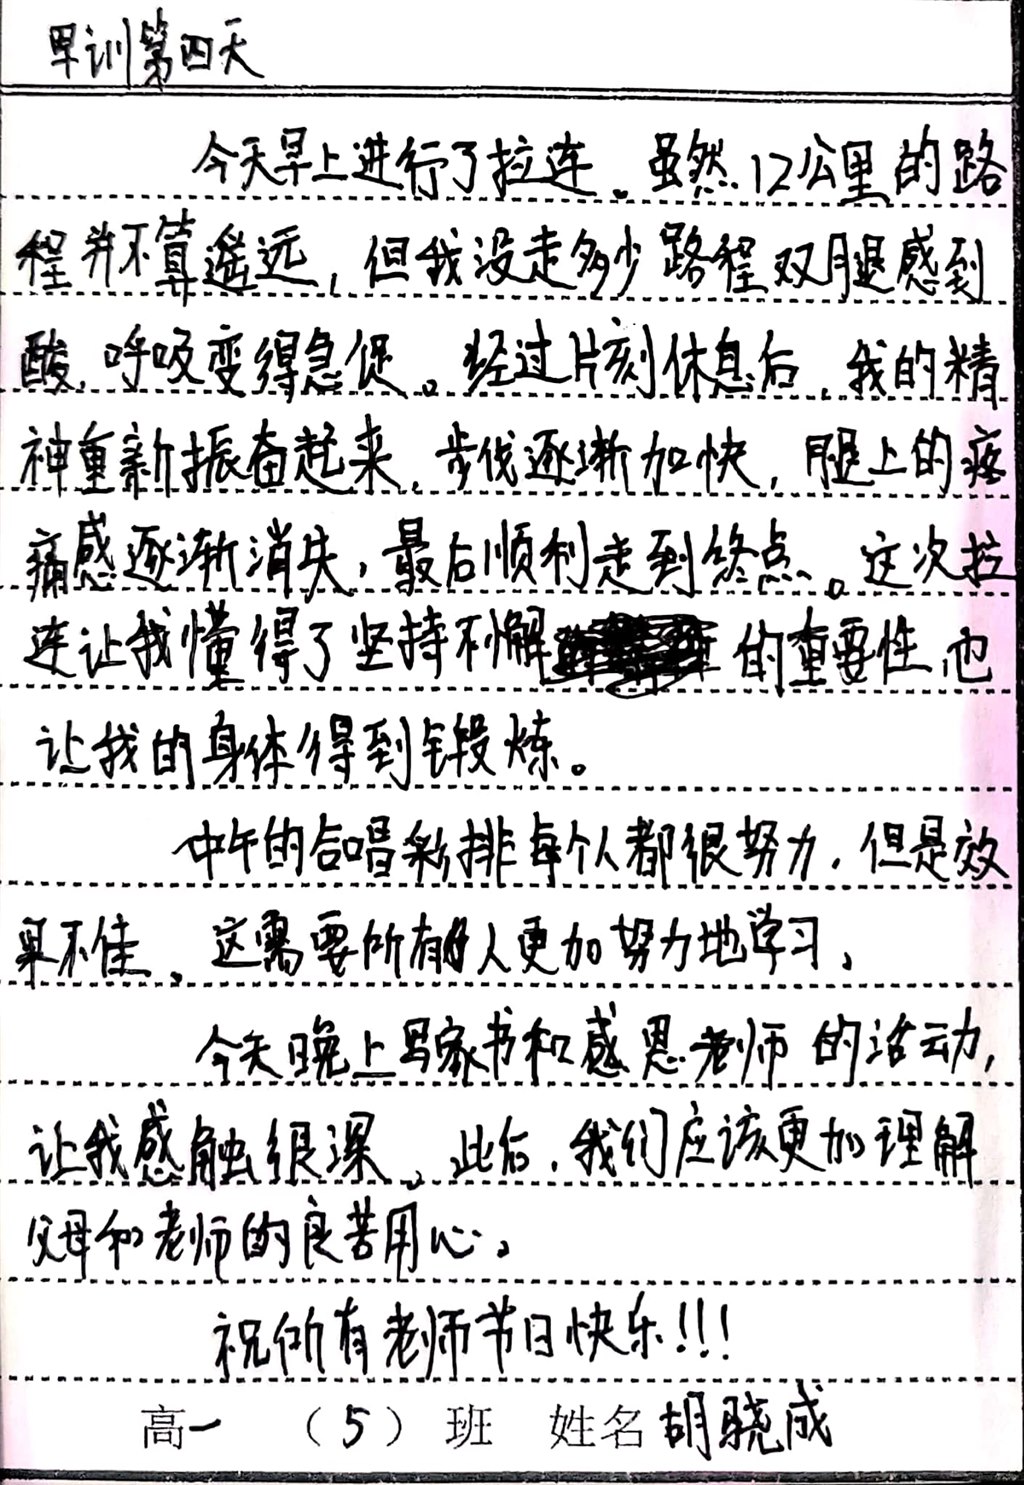 早训第四天
今天早上进行了拉连。虽然12公里的路
程并不算遥远，但我没走多少路程双腿感到
酸，呼吸变得急促。经过片刻休息后，我的精
神重新振奋起来，步伐逐渐加快，腿上的疼
痛感逐渐消失，最后顺利走到终点。这次拉
连让我懂得了坚持不懈的重要性，也
让我的身体得到锻炼。
中午的合唱彩排每个人都很努力，但是效
果不佳。这需要所有人更加努力地学习。
今天晚上写家书和感恩老师的活动，
让我感触很深。此后，我们应该更加理解
父母和老师的良苦用心。
祝所有老师节日快乐!!!
高一（5）班 姓名 胡骁成